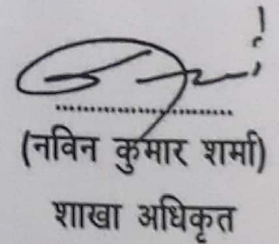 (नविन कुमार शर्मा)
शाखा अधिकृत